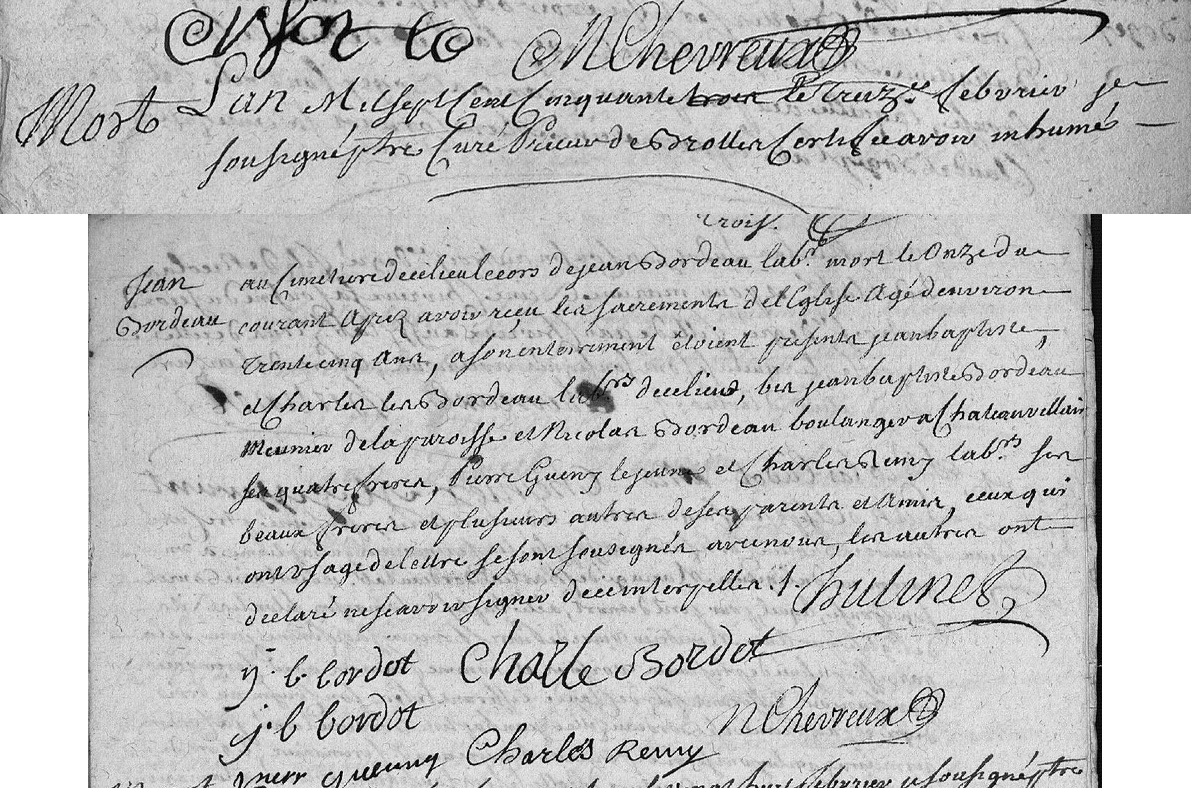 N Chevreux
Mort
L'an Mil sept Cent Cinquante trois le treize febvrier je
soussigné ptre Curé Prieur de Brottes Certifie avoir inhumé
trois.
Jean
Bordeau
au Cimetiere de ce lieu le cors de jean Bordeau lab.r mort le Onze du
courant Aprez avoir reçu les sacrements de l'Eglise Agé d'environ
trente cinq Ans, a son enterrement étoient presents jean baptiste,
et Charles les Bordeau lab.rs de ce lieu, jean baptiste Bordeau
Meunier de la paroisse et Nicolas Bordeau boulanger a Chateauvillain
ses quatre freres, Pierre Gueny le jeune et Charles Remy lab.rs ses
beaux freres et plusieurs autres de ses parents et Amis, ceux qui
ont usage de lettre se sont soussignés avec nous, les autres ont
declaré ne scavoir signer de ce interpellés.
j. b bordot Charle Bordot
j. b bordot
N Chevreux
Charles Remy
febvrier je soussigné ptre